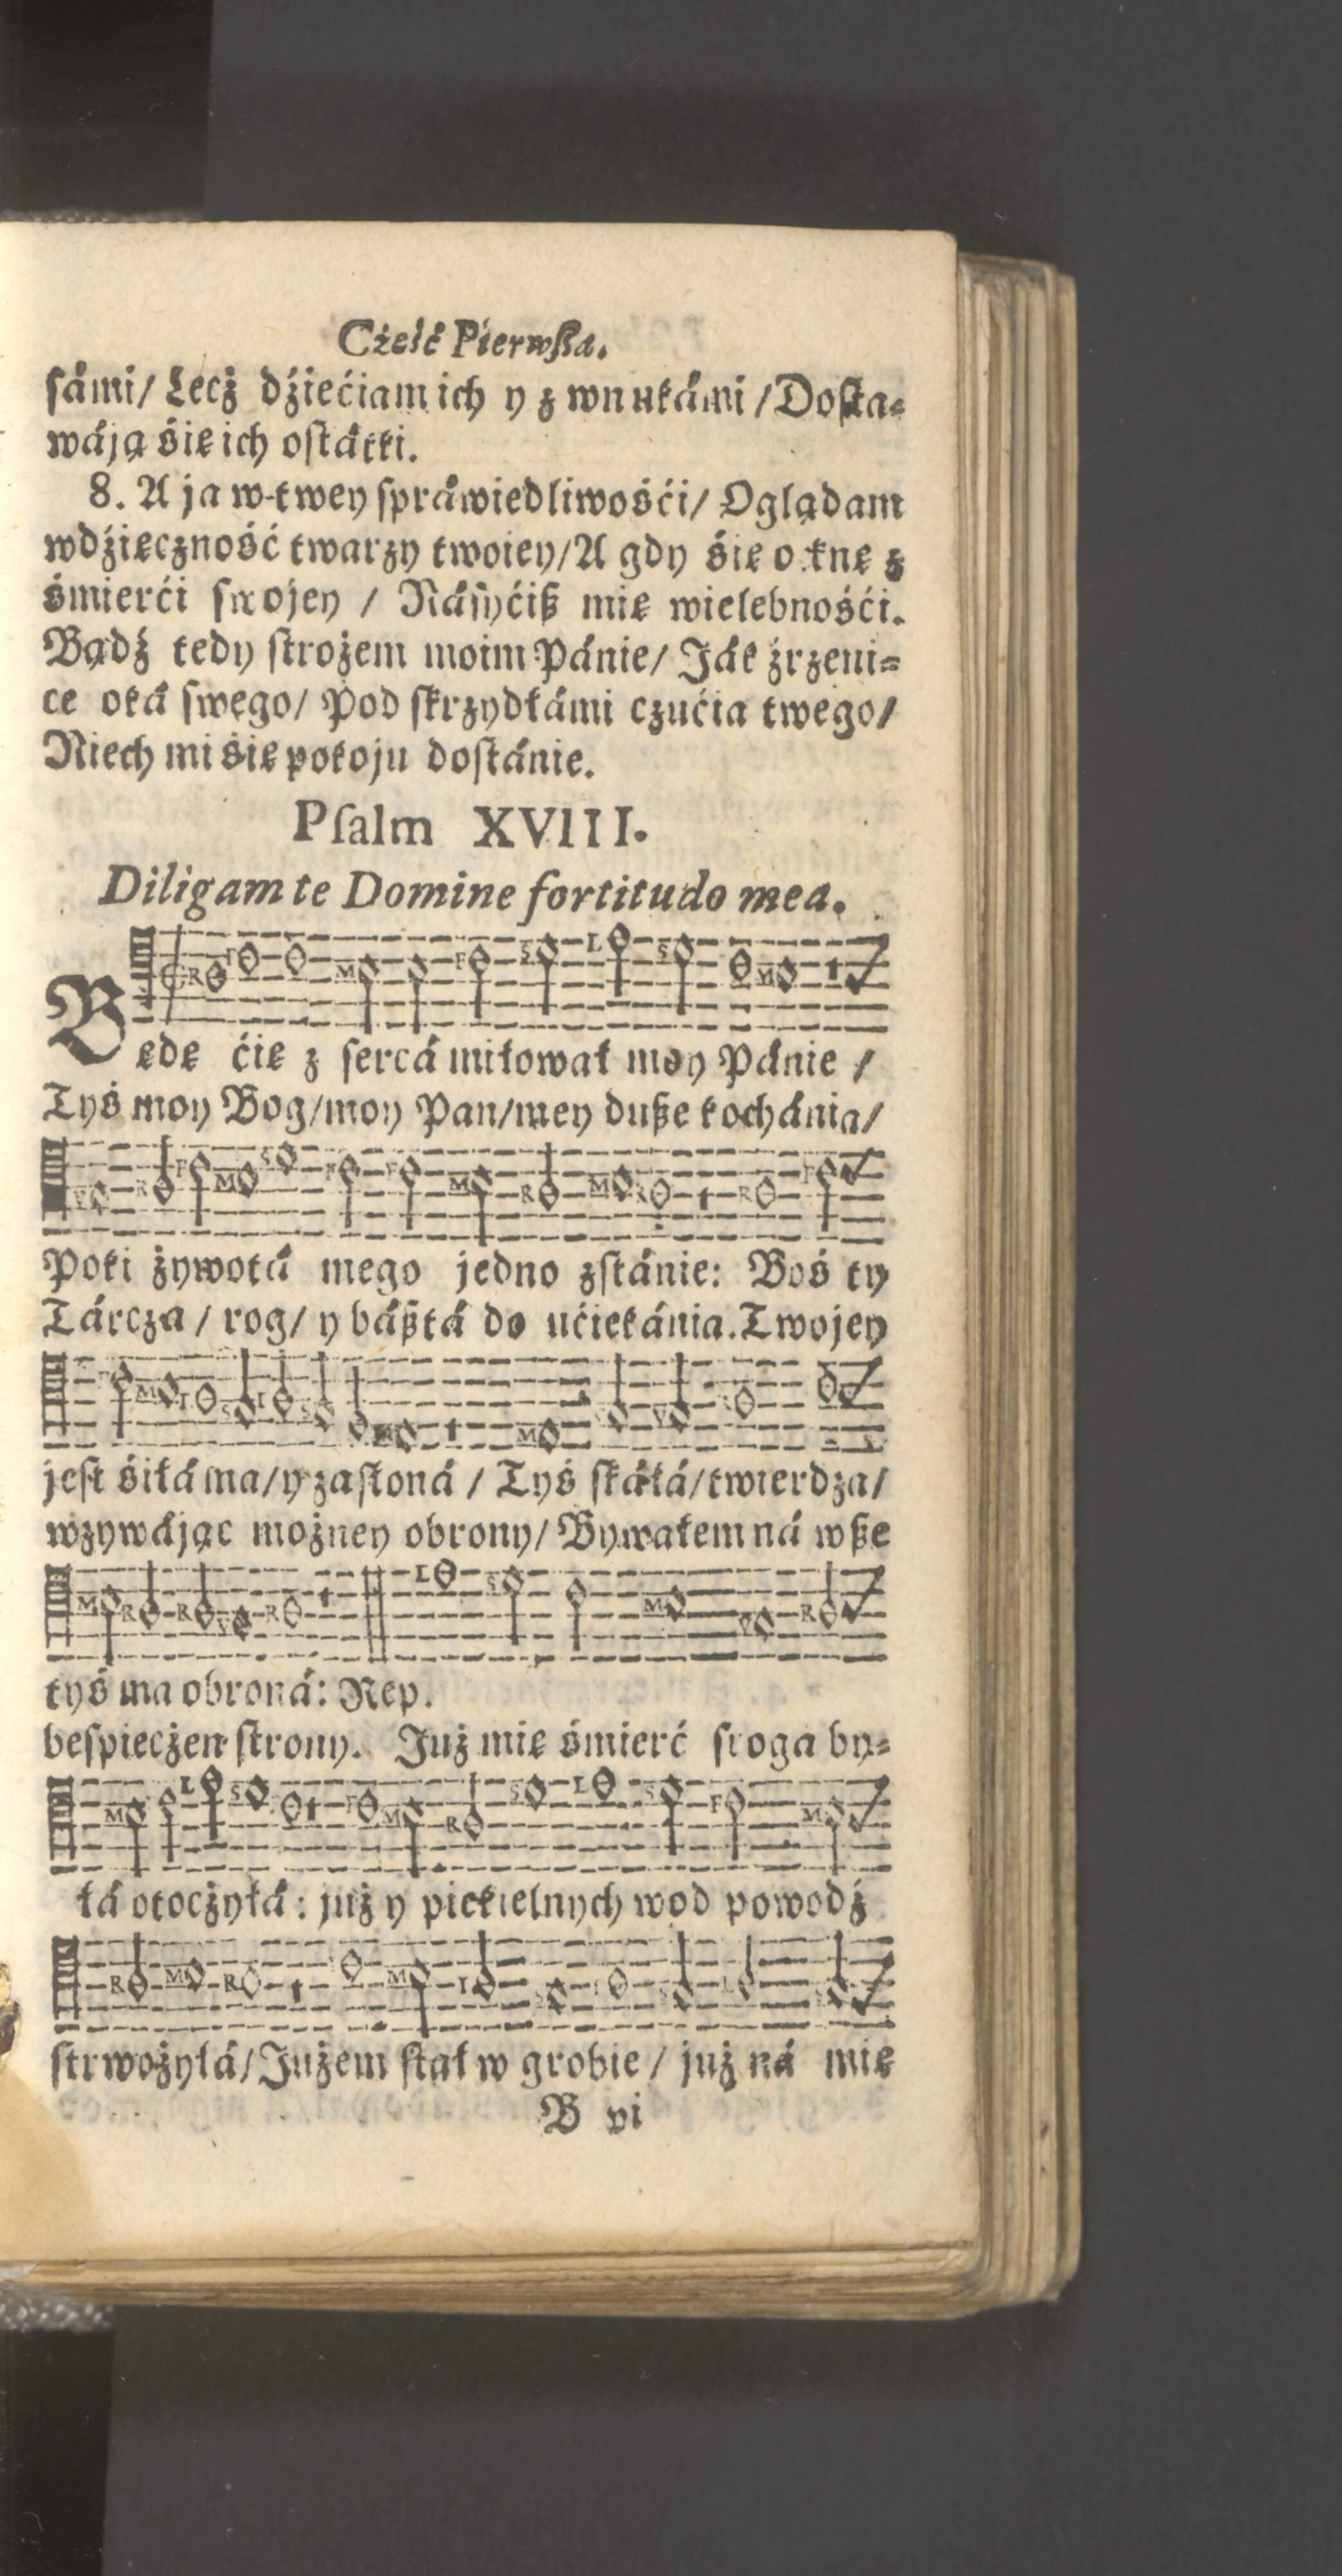 Cżęść Pierwſza.
ſámi/ Lecż dźiećiam ich y z wnukámi /Doſta-
wáją śię ich oſtátki.
8. A ja w-twey ſpráwiedliwośći/ Oglądam
wdźięcżność twarzy twoiey/A gdy śię ocknę z
śmierći ſwojey / Náſyćiß mię wielebnośći.
Bądź tedy ſtrożem moim Pánie/ Ják źrzeni-
ce oká ſwego/ Pod ſkrzydłámi czućia twego/
Niech mi śię pokoju doſtánie.
Pſalm XVIII.
Diligam te Domine fortitudo mea.
Będę ćię z ſercá miłował moy Pánie /
Tyś moy Bog/moy Pan/mey duße kochánia/
Poki żywotá mego jedno zſtánie: Boś ty
Tárcza / rog/ y báßtá do ućiekánia. Twojey
jeſt śiłá ma/y zaſłoná / Tyś ſkáłá/twierdza/
wzywájąc możney obrony/ Bywałem ná wße
tyś ma obroná: Rep.
beſpiecżen ſtrony. Już mię śmierć ſroga by-
łá otocżyłá: już y piekielnych wod powodź
ſtrwożyłá/ Jużem ſtał w grobie / już ná mię
B vi